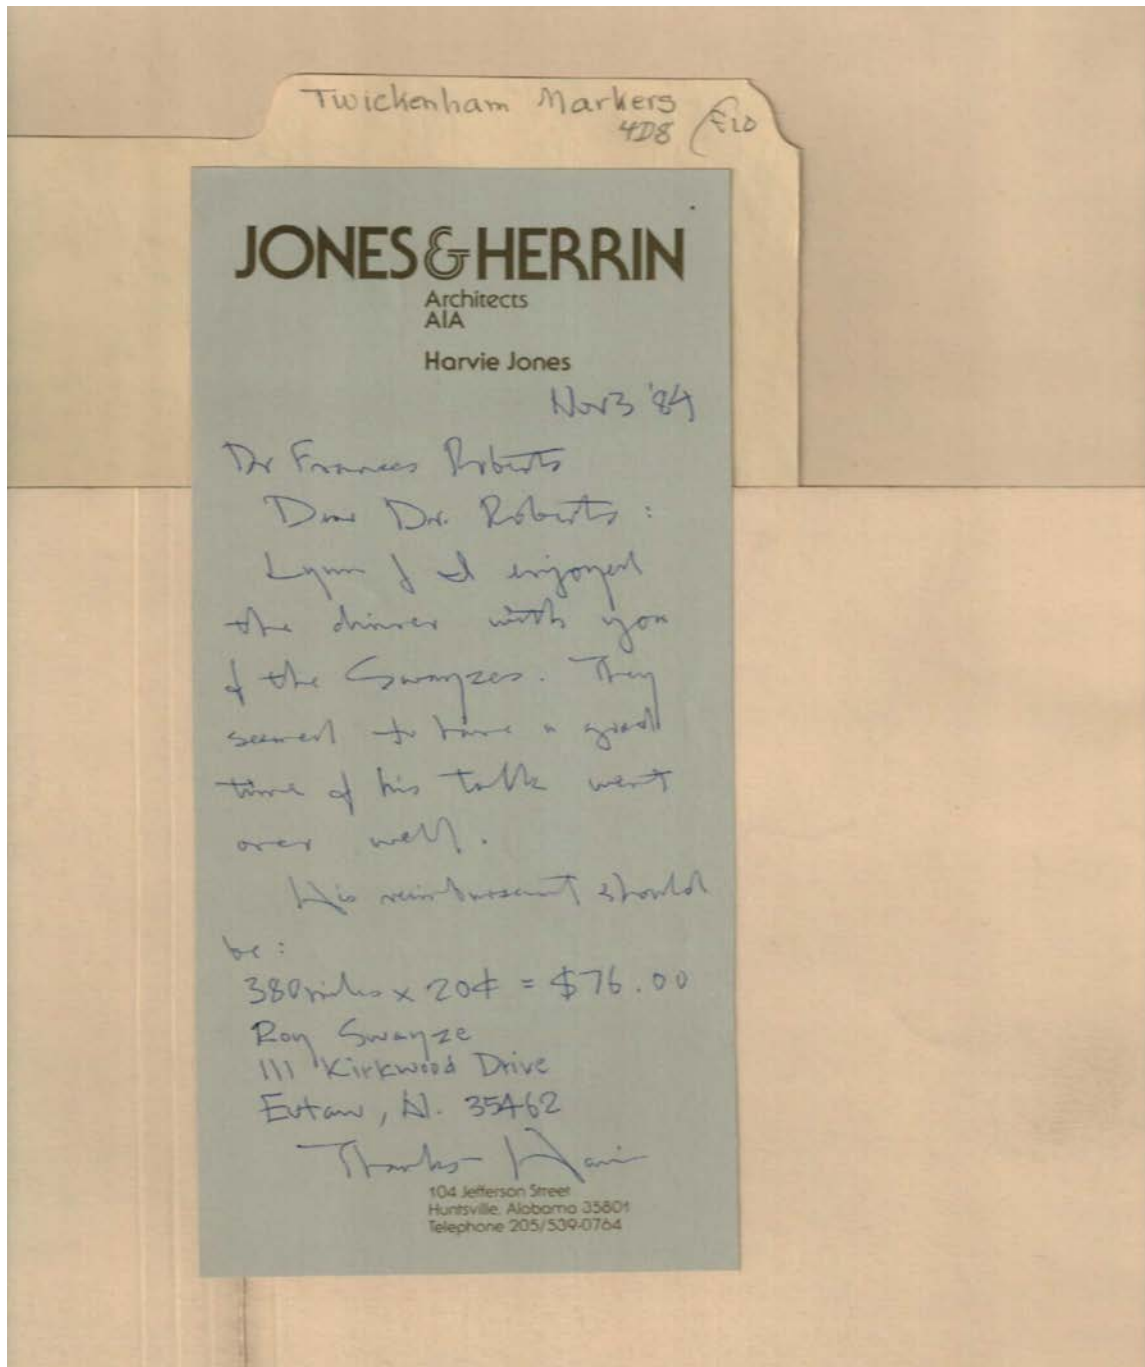 Twickenham Markers
4D8
JONES & HERRIN
Architects
AIA
Harvie Jones
Nov 3 '84
Dr Frances Roberts
Dear Dr. Roberts:
Lynn & I enjoyed
the dinner with you
& the Swayzes. They
seemed to have a good
time & his talk went
over well.
His reimbursemt should
be:
380 miles x 20¢ = $76.00
Roy Swayze
111 Kirkwood Drive
Eutaw, Al. 35462
Thanks - Harvie
104 Jefferson Street
Huntsville, Alabama 35801
Telephone 205/539-0764